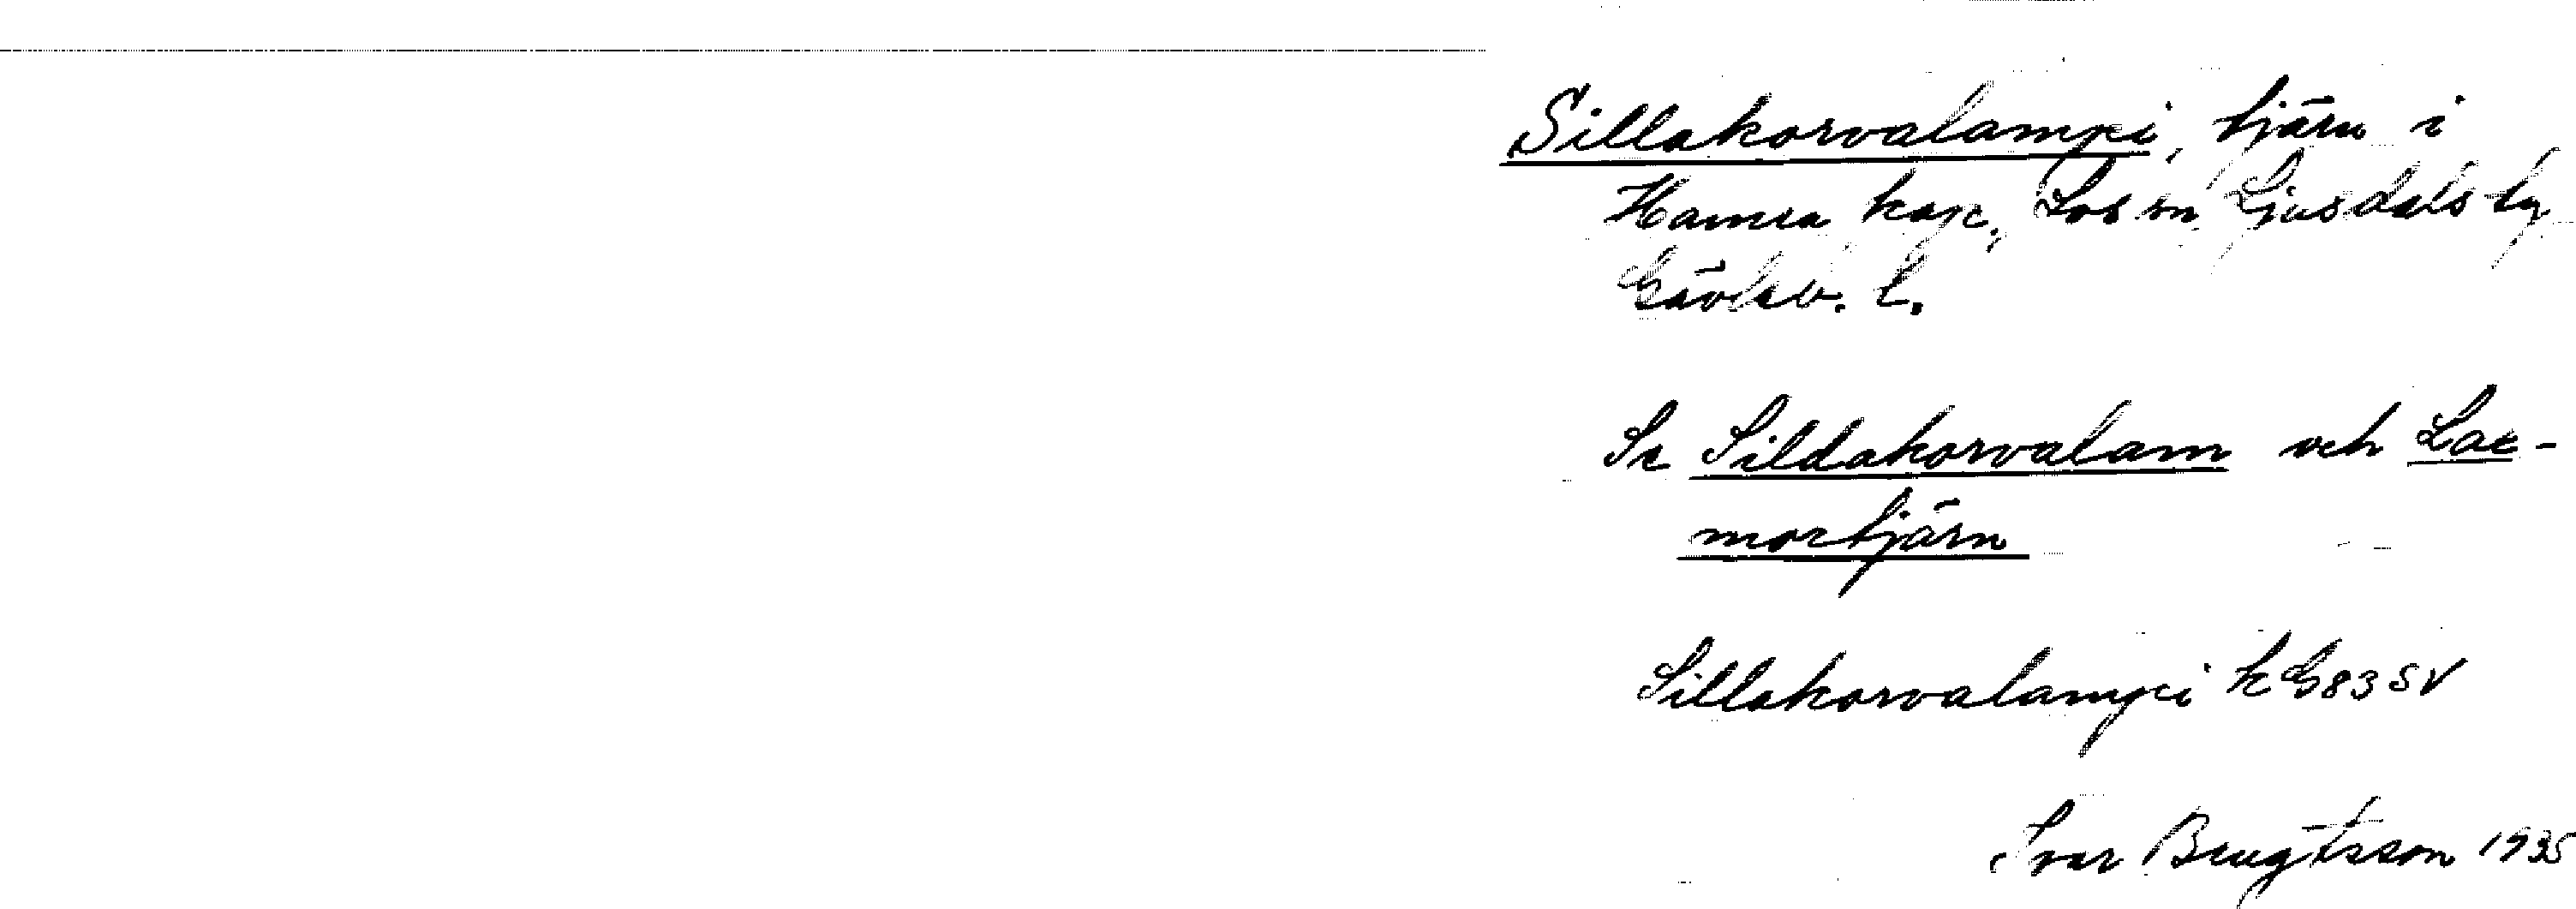 Sillakorvalampi, tjärn i
Hamra kap., Los sn Ljusdals tg
Gävleb. l.
Se Sildakorvalam och Lae-
mortjärn
Sillakorvalampi k G83 SV
Ivar Bengtsson 1935